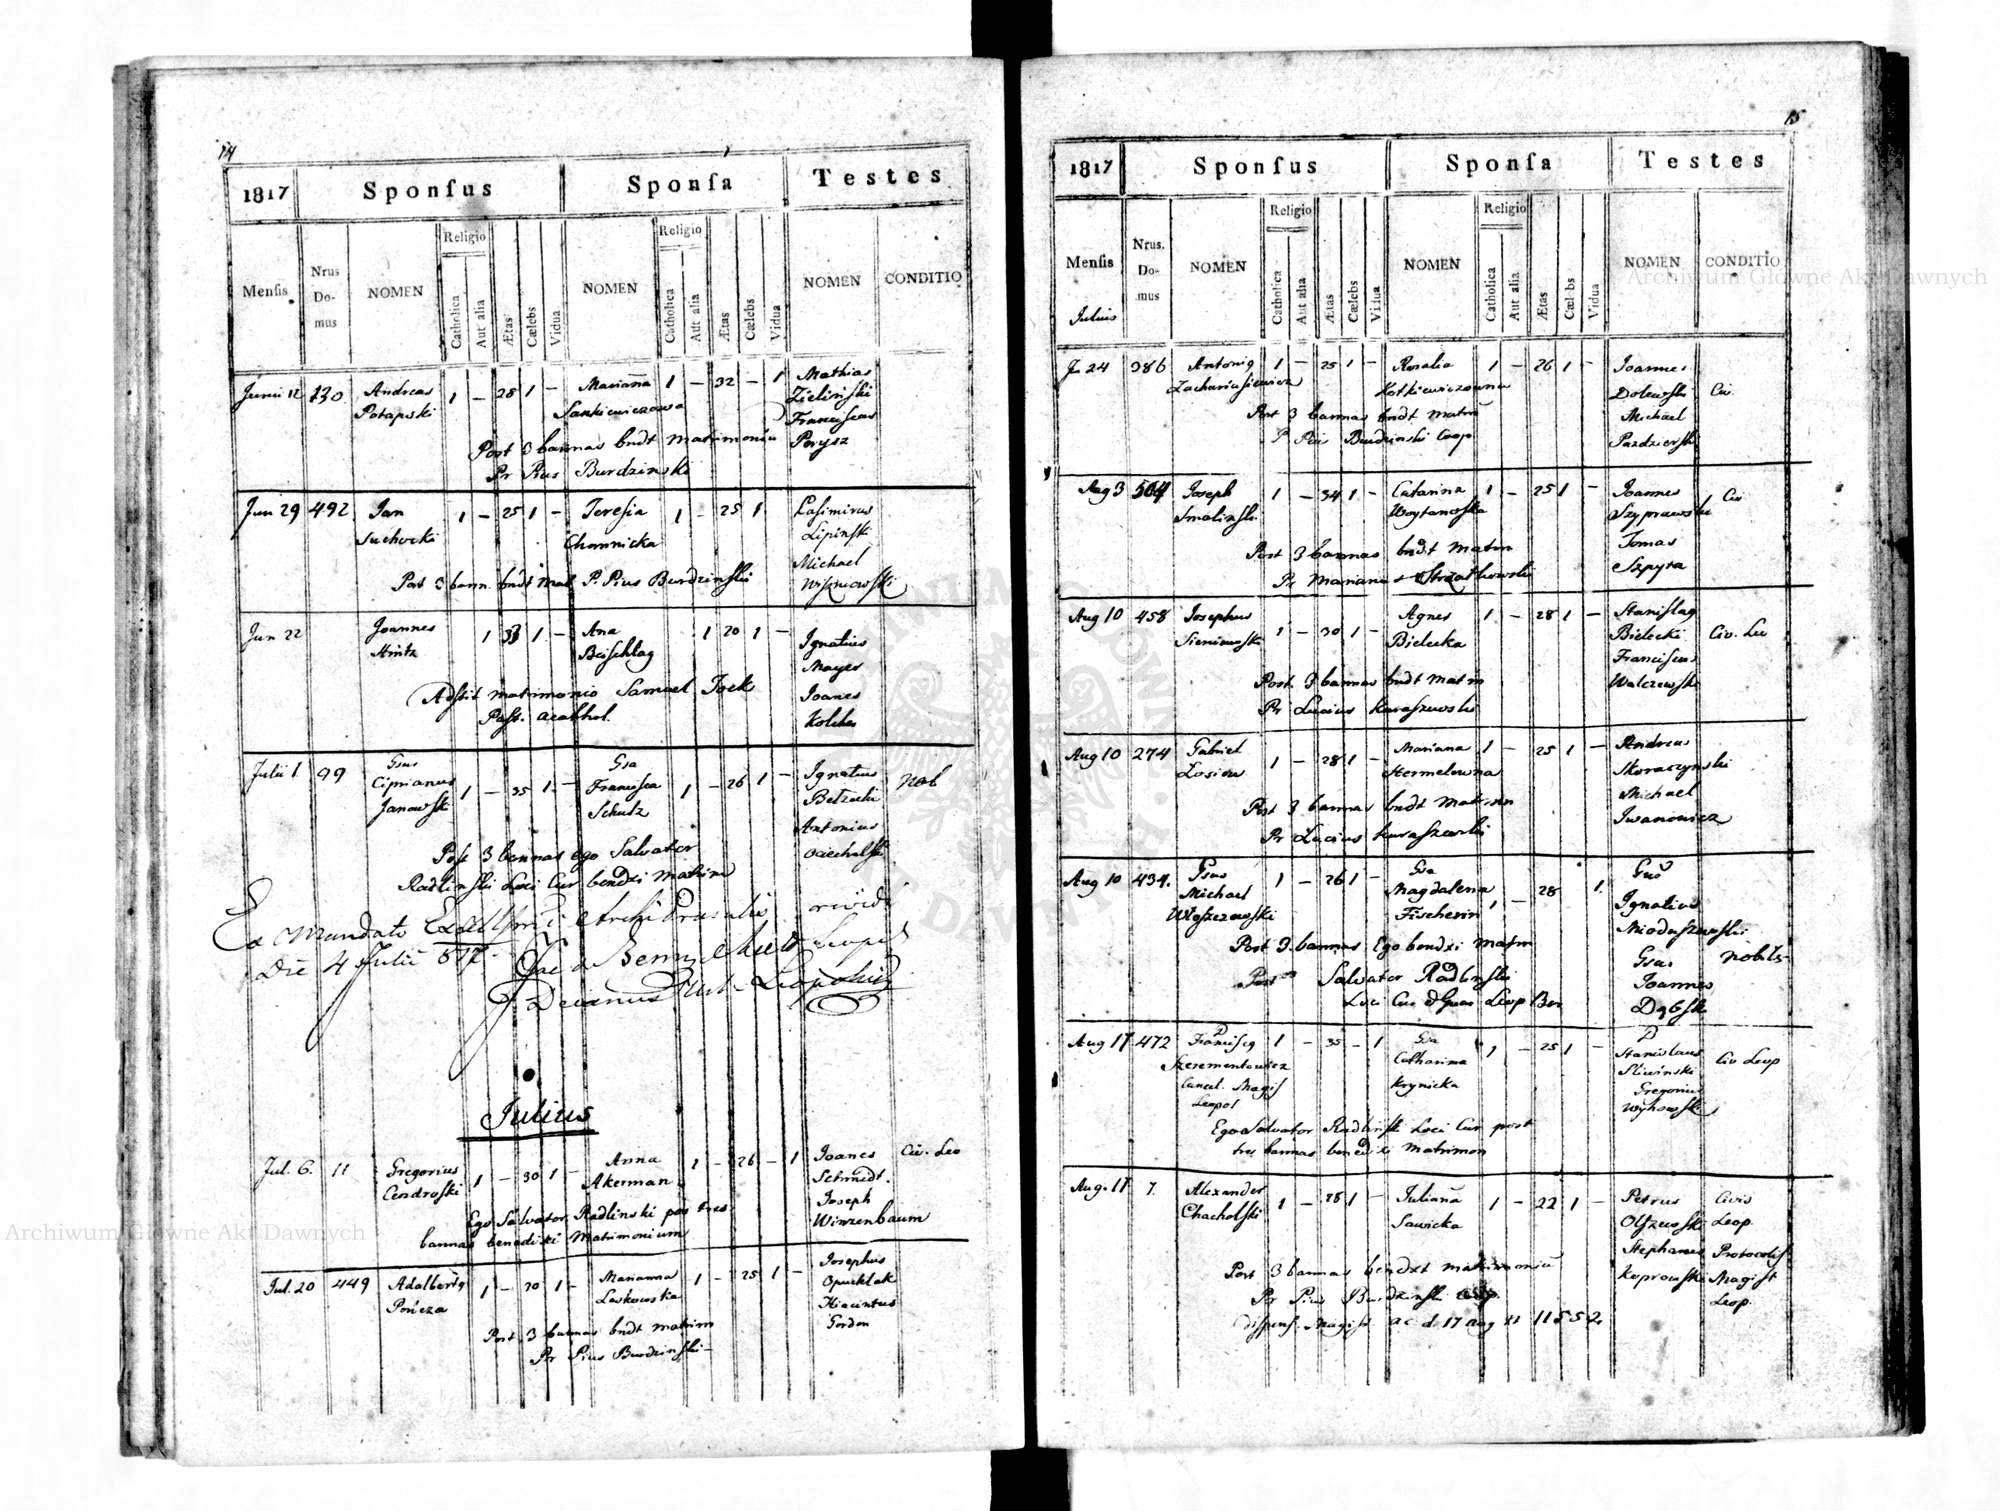 14
1817 Sponſus Sponſa Testes
Menſis Nrus Do- mus NOMEN Religio Catholica Aut alia Ætas Cælebs Vidua NOMEN Religio Catholica Aut alia Ætas Cælebs Vidua NOMEN CONDITIO
Junii 12 130 Andreas 1 – 28 1 – Marianna 1 – 32 – 1 Mathias
Potapski Sankiewiczowa Zieliński
Franciscus
Post 3 bannas bndt matrimoniu Perysz
Pr Pius Burdzinski
Jun 29 492 Jan 1 – 25 1 – Teresia 1 – 25 1 Casimirus
Suchocki Chomnicka Lipinski
Michael
Post 3 bann. bndt mat P. Pius Burdzinski Wiszniowski
Jun 22 Joannes 1 33 1 – Ana 1 20 1 – Ignatius
Hintz Beischlag Mayer
Adstit matrimonio Samael Joes Joanes
Past. acathol. Kolcher
Julii 1 99 Gsus Gsa Ignatius
Ciprianus 1 – 35 1 – Francisca 1 – 26 1 – nob
Janowski Schutz Antonius
Post 3 bannas ego Salvator
Radlinski Loci Cur bendxi matrim
Ex Mandato Archi Prasulis revidi
Die 4 Julii 817
Decanus
Julius
Jul. 6. 11 Gregorius 1 – 30 1 – Anna 1 – 26 – 1 Joanes Civ. Leo
Cendroski Akerman Schmidt.
Ego Salvator Radlinski pos tres Joseph
bannas benedixi Matrimonium Winzenbaum
Jul. 20 449 Adalbertg 1 – 30 1 – Marianna 1 – 25 1 – Josephus
Pończa Laskowska Opuchlak
Post 3 bannas bndt matrim Hiacintus
Pr Pius Burdzinski Gordon
15
1817 Sponſus Sponſa Testes
Menſis Nrus. Do- mus NOMEN Religio Catholica Aut alia Ætas Cælebs Vidua NOMEN Religio Catholica Aut alia Ætas Cælebs Vidua NOMEN CONDITIO
Julius
Ju 24 386 Antonig 1 – 25 1 – Rosalia 1 – 26 1 – Joannes
Zachariasiewicz Kotkiewiczowna Dolewski Civ.
Post 3 bannas bndt matm Michael
P Pius Burdzinski Coop Pazdzierski
Aug 3 504 Joseph 1 – 34 1 – Catarina 1 – 25 1 – Joannes Civ
Smolinski Woytanowska Szyprawski
Post 3 bannas bndt matm Tomas
Pr Mariana Strzatkowski Szpyra
Aug 10 458 Josephus 1 – 30 1 – Agnes 1 – 28 1 – Stanislag
Sieniawski Bielecka Bielecki Civ. Leo
Post. 3 bannas bndt matm Franciscus
Pr Lucius Kuraszewski Walczewski
Aug 10 274 Gabriel 1 – 28 1 – Mariana 1 – 25 1 – Andreas
Losiow Hermelowna Skoraczynski
Post 3 bannas bndt matrim Michael
Pr Lucius Kuraszewski Iwanowicz
Aug 10 434. Gsus 1 – 26 1 – Gsa 1 – 28 1. Gsus
Michael Magdalena Ignatius
Wloszezowski Fischerin Mioduszewski
Post 3. bannas Ego bendxi matm Gsus nobils
Post Salvator Radlinski Joannes
Loci Cur Leop Dąbsk
Aug 17 472 Francisg 1 – 35 – 1 Gsa 1 – 25 1 – Stanislaus Civ Leop
Szerementowicz Catharina Sliwinski
Cancel. Magis Krynicka Gregorius
Leopol Wyhowski
Ego Salvator Radlinski Loci Cur post
tres bannas benedixi Matrimon
Aug. 17 7. Alexander 1 – 28 1 – Julianna 1 – 22 1 – Petrus Civis
Chacholski Sawicka Olszewski Leop.
Stephanus Protocolis
Post 3 bannas bendxt matrimoniu Koprowski Magist
Pr Pius Burdzinski Coop. Leop.
dispens. Magist ac d. 17 Aug 11552